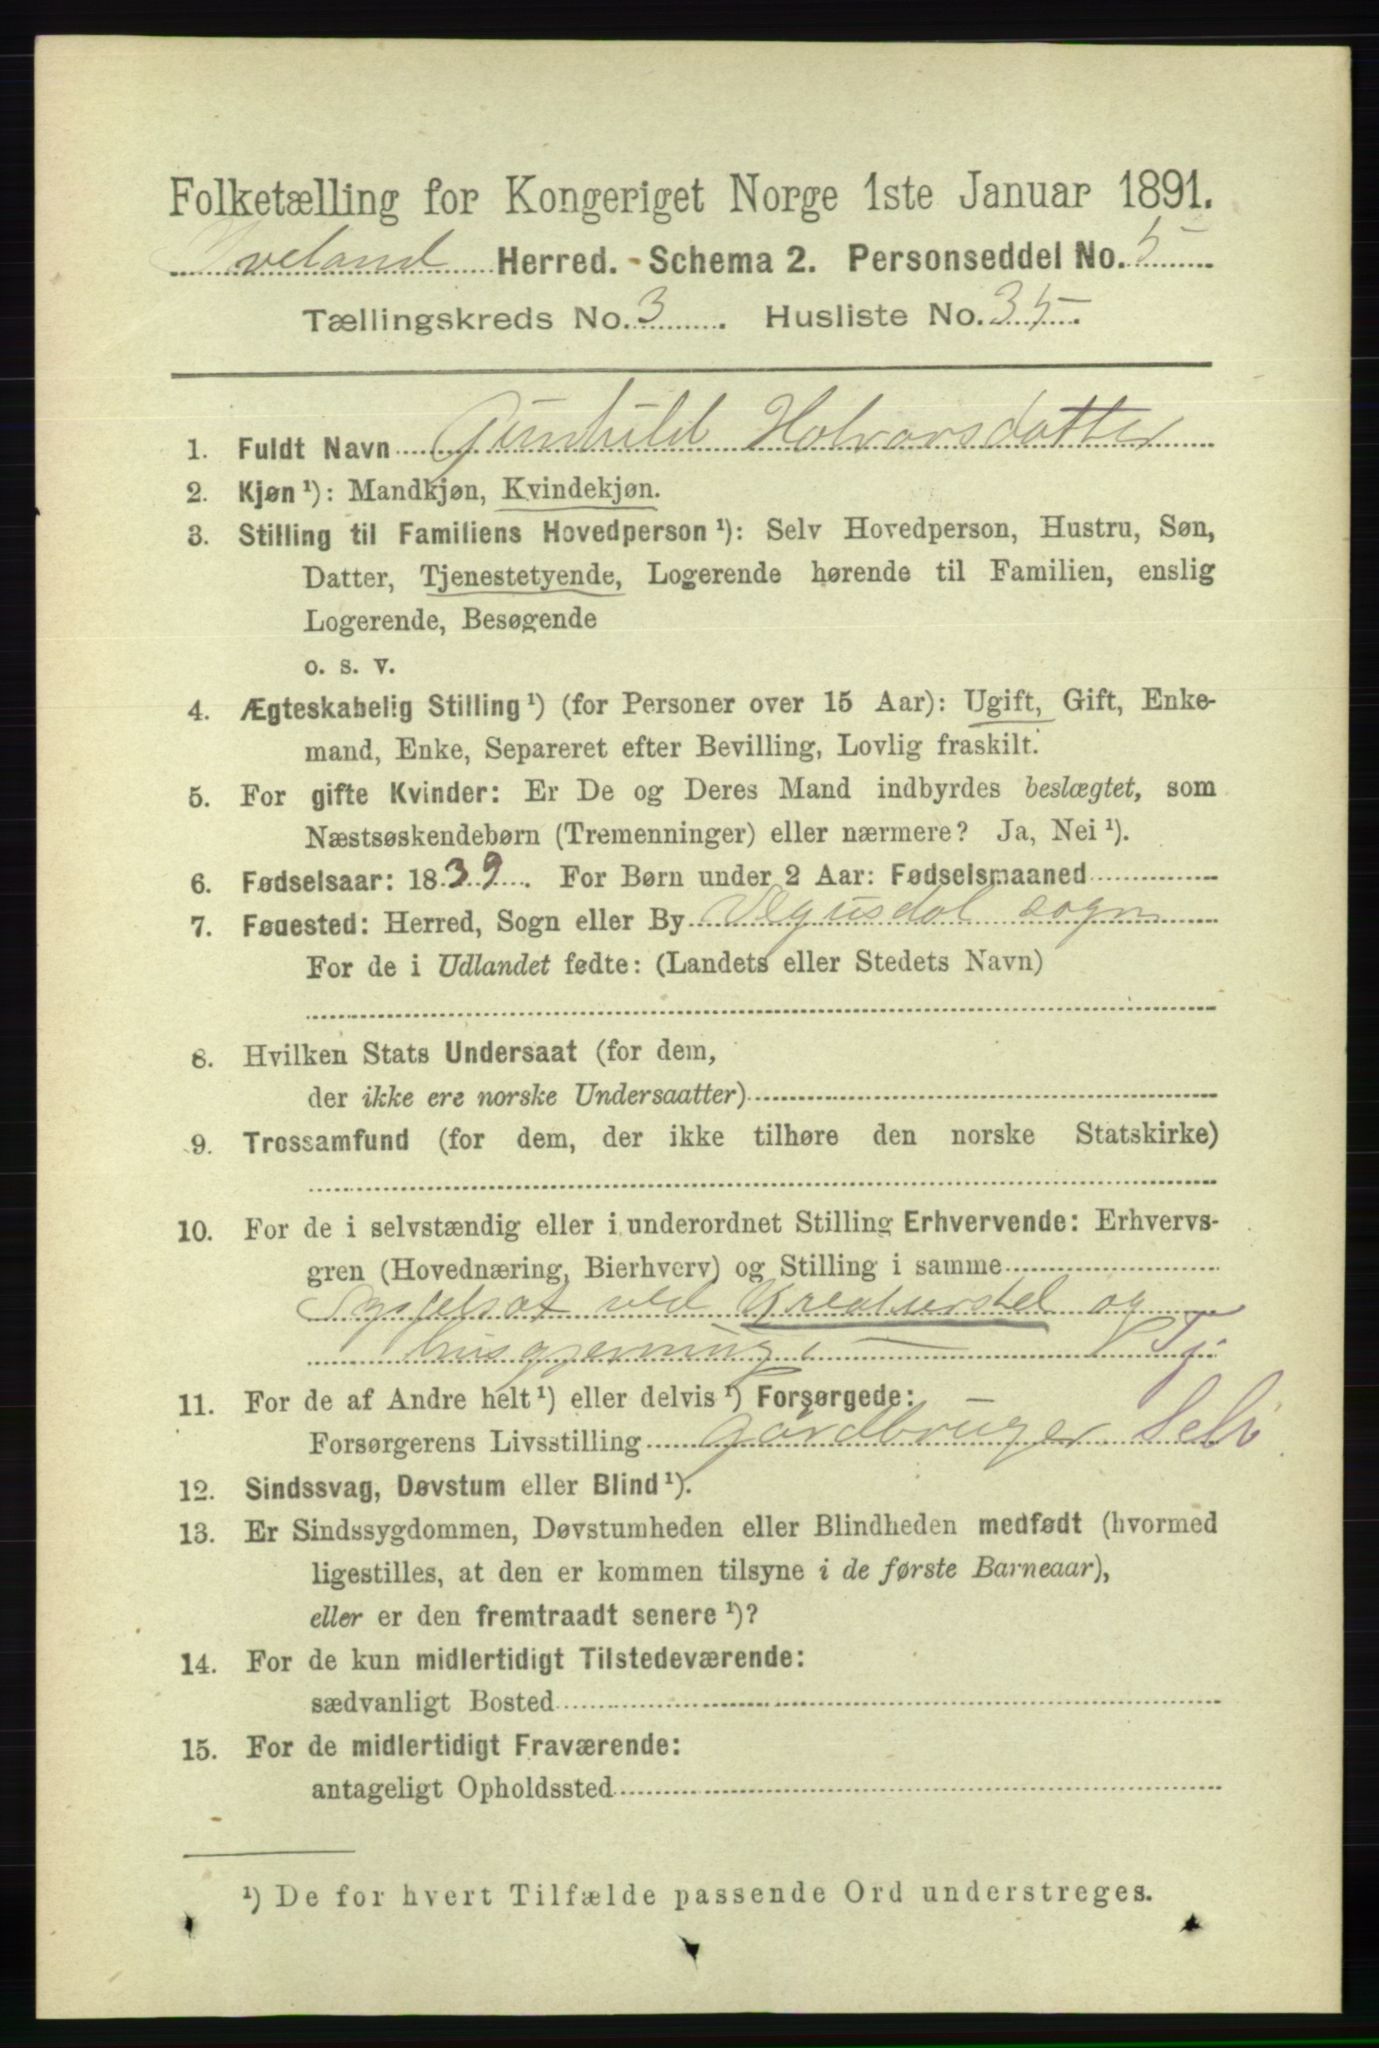 Folketælling for Kongeriget Norge 1ste Januar 1891.
Iveland Herred. - Schema 2. Personseddel No. 5
Tællingskreds No. 3. Husliste No. 35.
1. Fuldt Navn Gunhild Holvorsdatter
2. Kjøn ¹): Mandkjøn, Kvindekjøn.
3. Stilling til Familiens Hovedperson ¹): Selv Hovedperson, Hustru, Søn,
Datter, Tjenestetyende, Logerende hørende til Familien, enslig
Logerende, Besøgende
o. s. v.
4. Ægteskabelig Stilling ¹) (for Personer over 15 Aar): Ugift, Gift, Enke-
mand, Enke, Separeret efter Bevilling, Lovlig fraskilt.
5. For gifte Kvinder: Er De og Deres Mand indbyrdes beslægtet, som
Næstsøskendebørn (Tremenninger) eller nærmere? Ja, Nei ¹).
6. Fødselsaar: 1839. For Børn under 2 Aar: Fødselsmaaned
7. Fødested: Herred, Sogn eller By Vegusdal sogn
For de i Udlandet fødte: (Landets eller Stedets Navn)
8. Hvilken Stats Undersaat (for dem,
der ikke ere norske Undersaatter)
9. Trossamfund (for dem, der ikke tilhøre den norske Statskirke)
10. For de i selvstændig eller i underordnet Stilling Erhvervende: Erhvervs-
gren (Hovednæring, Bierhverv) og Stilling i samme
Sysselsat ved Kreaturstel og
husgjerning Tj
11. For de af Andre helt ¹) eller delvis ¹) Forsørgede:
Forsørgerens Livsstilling gårdbruger Selv
12. Sindssvag, Døvstum eller Blind ¹).
13. Er Sindssygdommen, Døvstumheden eller Blindheden medfødt (hvormed
ligestilles, at den er kommen tilsyne i de første Barneaar),
eller er den fremtraadt senere ¹)?
14. For de kun midlertidigt Tilstedeværende:
sædvanligt Bosted
15. For de midlertidigt Fraværende:
antageligt Opholdssted
¹) De for hvert Tilfælde passende Ord understreges.